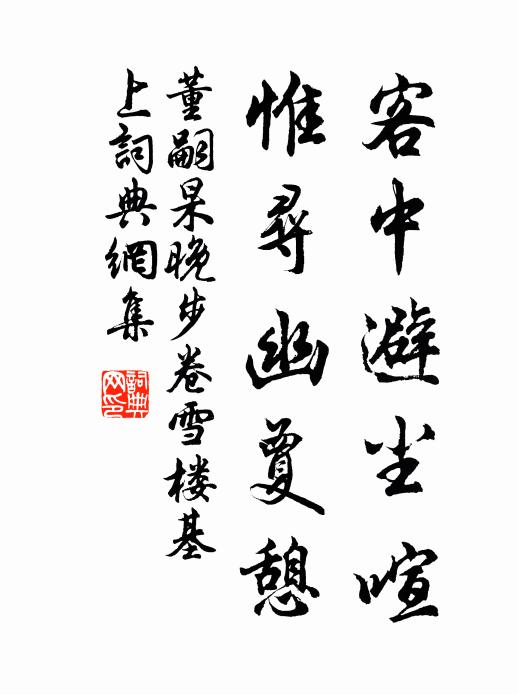 客中避尘喧
惟尋幽夐憩
董嗣杲晚步卷雪楼基
上詞典網集
詞典网印